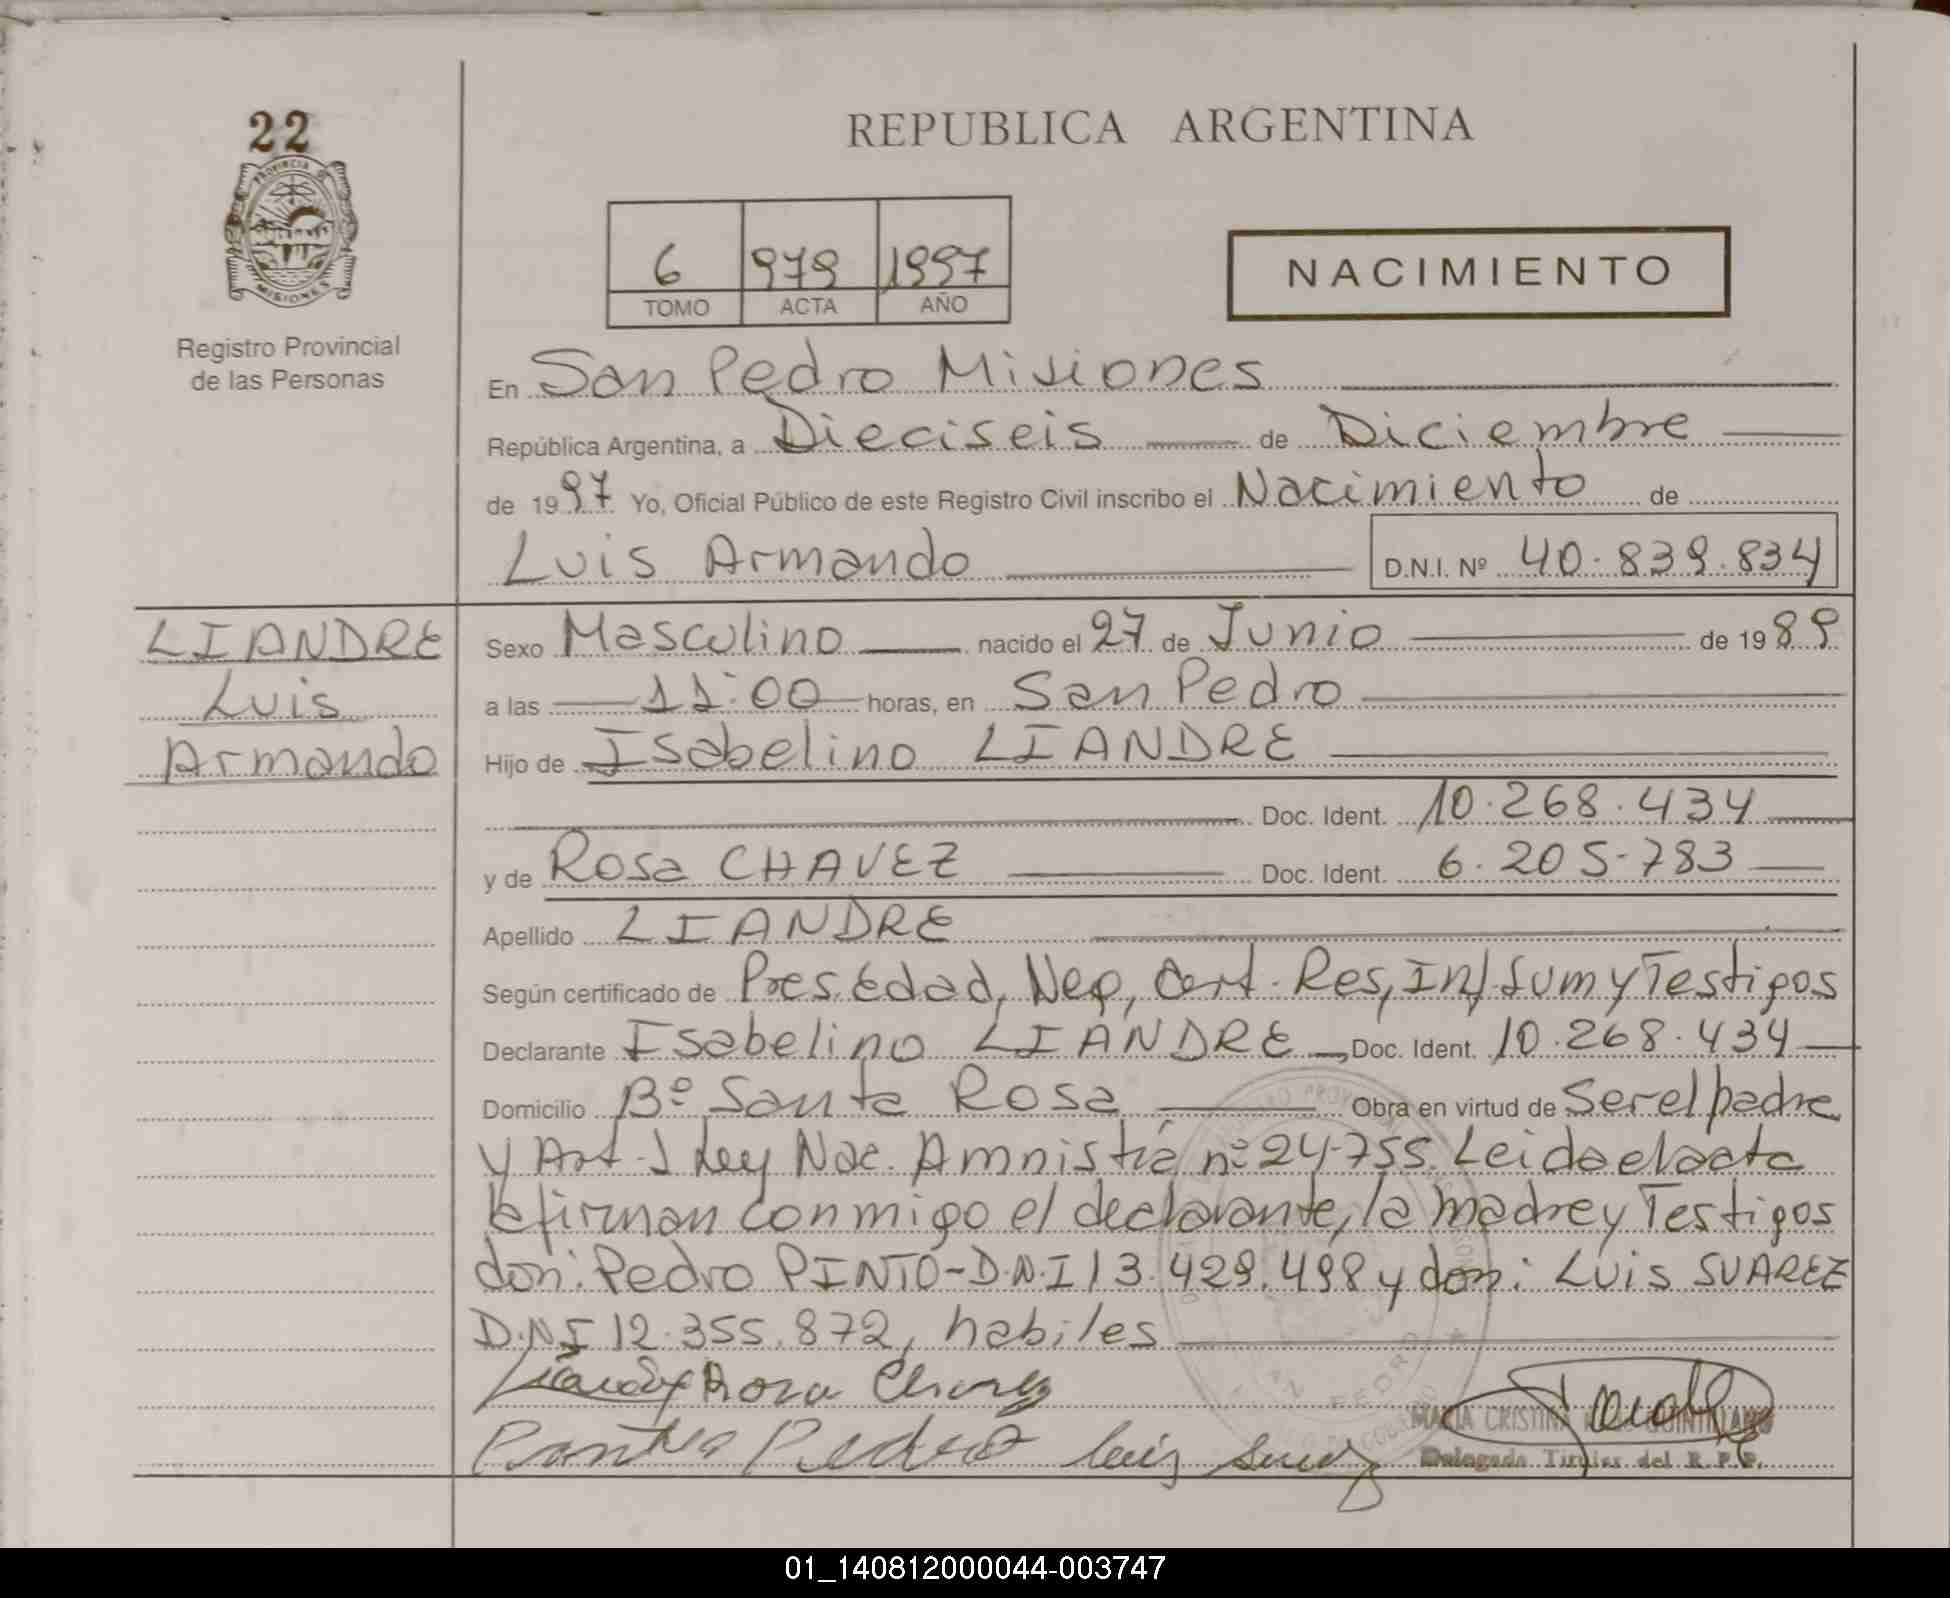 22
REPUBLICA ARGENTINA
PROVINCIA D
MISIONES
Registro Provincial
de las Personas
6 979 1997
TOMO ACTA AÑO
NACIMIENTO
En San Pedro Misiones
República Argentina, a Dieciseis de Diciembre
de 1997 Yo, Oficial Público de este Registro Civil inscribo el Nacimiento de
Luis Armando D.N.I. Nº 40.839.834
LIANDRE
Luis
Armando
Sexo Masculino nacido el 27 de Junio de 1989
a las 11:00 horas, en San Pedro
Hijo de Isabelino LIANDRE
Doc. Ident. 10.268.434
y de Rosa CHAVEZ Doc. Ident. 6.205.783
Apellido LIANDRE
Según certificado de Pres. Edad, Neg, Cert. Res, Inf. Sum y Testigos
Declarante Isabelino LIANDRE, Doc. Ident. 10.268.434
Domicilio Bº Santa Rosa Obra en virtud de Ser el padre
y Art. 1 Ley Nac. Amnistía nº 24.755. Leida el acta
la firman conmigo el declarante, la madre y Testigos
don: Pedro PINTO-D.N.I 13.429.498 y don: Luis SUAREZ
D.N.I 12.355.872, habiles
Rosa Chavez
Pedro Luis
MARIA CRISTINA QUINTILLANO
Delegada Titular del R.P.P.
SAN PEDRO
01_140812000044-003747